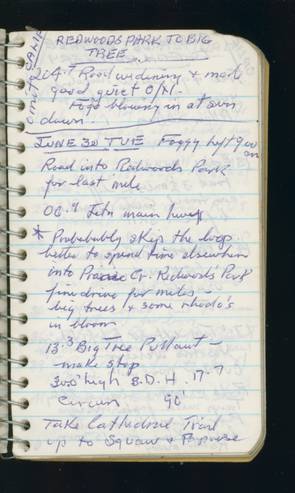 REDWOODS PARK TO BIG
TREE
Road widening & most
good quiet O/N.
Fogs blowing in at sun
down
JUNE 30 TUE Foggy Left 9:00
am
Road into Redwoods Park
for last mile
00.9 Jctn main hwy
* Probebably skip the loop
better to spend time elsewhere
into Prairie Cr. Redwoods Park
fine drive for miles -
big trees & some rhodo's
in bloom
13.3 Big Tree Pullout -
make stop
300' high B.D.H. 17.7
Circum 90'
Take Cathedral Trail
up to Squaw & Papoose